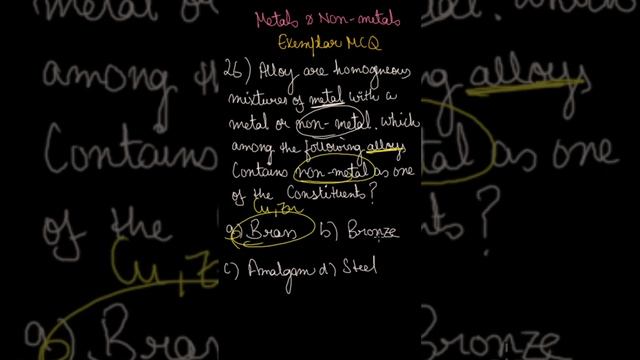 Metals & Non-metals
Exemplar MCQ
26) Alloy are homogneous
mixtures of metal with a
metal or non-metal. which
among the following alloys
Contains non-metal as one
of the Constituents?
Cu, Zn
a) Brass b) Bronze
c) Amalgam d) Steel